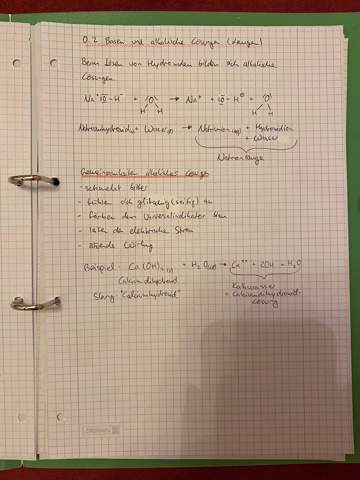 0.2 Basen und alkalische Lösungen (Laugen)
Beim Lösen von Hydroxiden bilden sich alkalische
Lösungen
Na⁺ IO̅-H⁻ + O → Na⁺ + IO̅-H⊖ + O
H H H H
Natriumhydroxid(s) + Wasser(l) → Natriumion(aq) + Hydroxidion
+ Wasser
Natronlauge
Gemeinsamkeiten alkalischer Lösungen
- schmeckt bitter
- fühlen sich glitschig (seifig) an
- färben den Universalindikator blau
- leiten den elektrischen Strom
- ätzende Wirkung
Beispiel: Ca(OH)₂ (s) + H₂O(l) → Ca²⁺ + 2OH⁻ + H₂O
Calciumdihydroxid Kalkwasser
Slang "Calciumhydroxid" = Calciumdihydroxid-
lösung